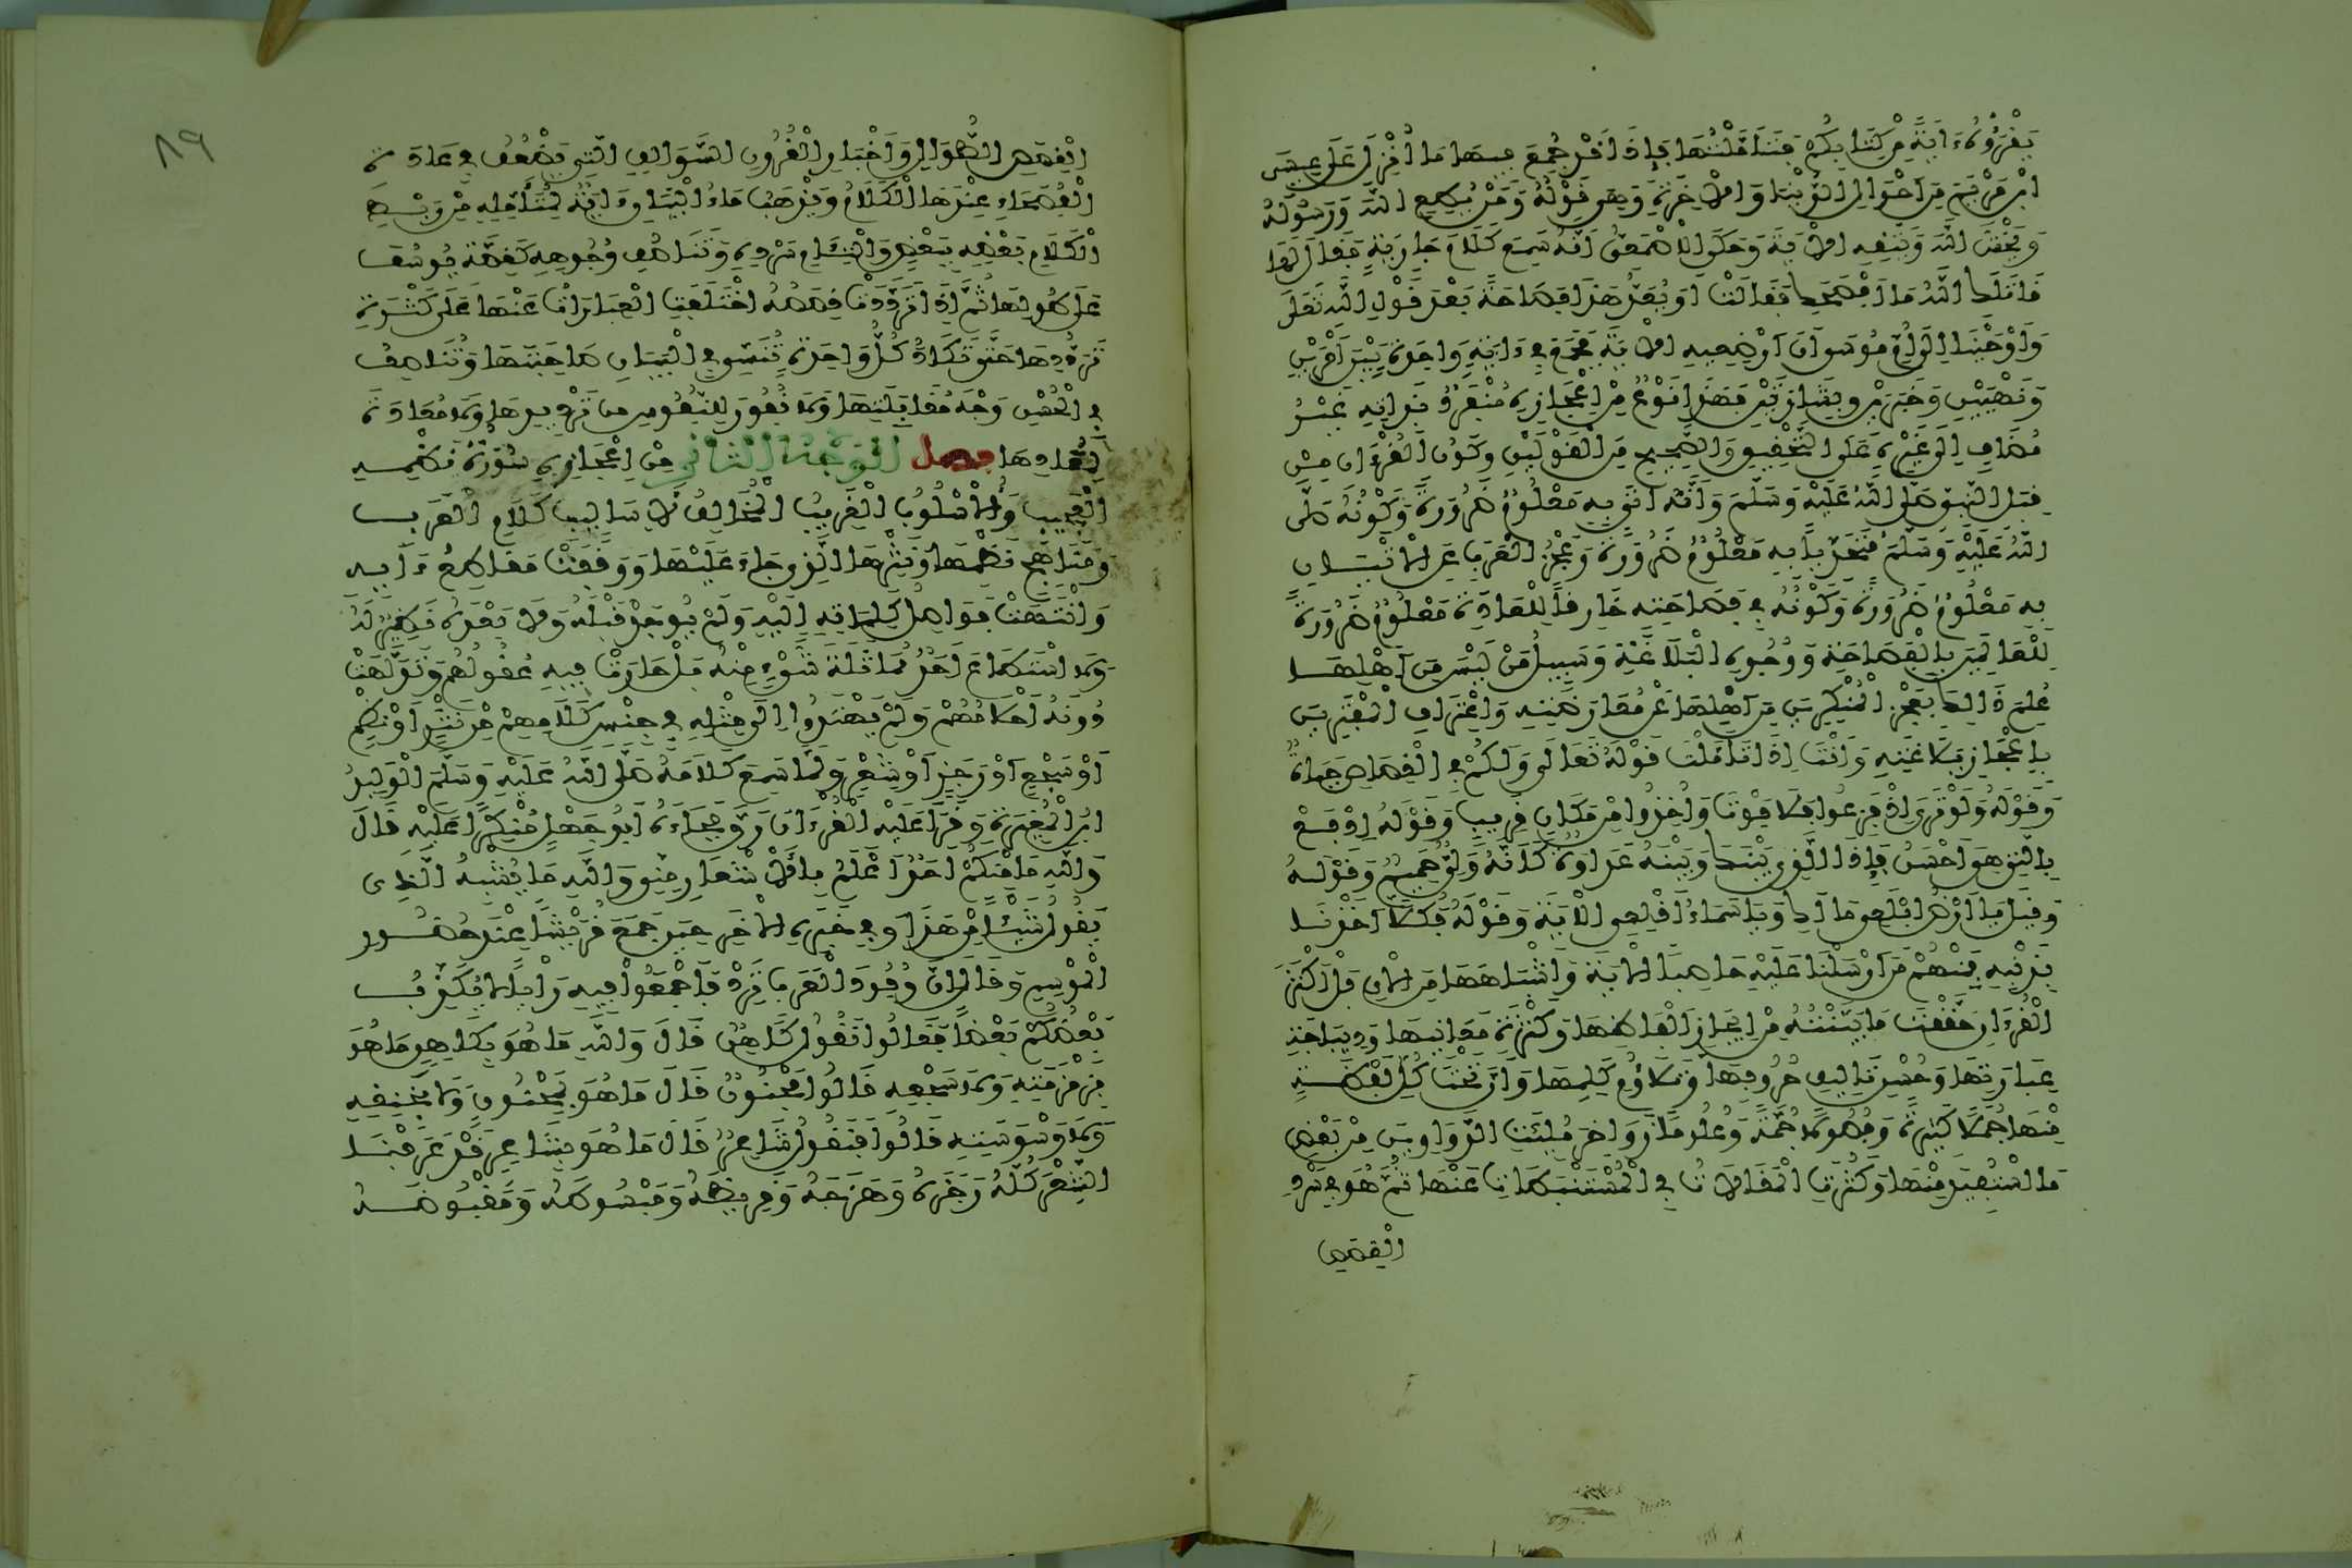 يَقْرَؤُنَ ءَايَةً مِّن كِتَابِكُمْ فَتَأَمَّلْتُهَا فَإِذَا قَدْ جُمِعَ فِيهَا مَا أُنْزِلَ عَلَى عِيسَى
ابْنِ مَرْيَمَ مِنْ أَحْوَالِ الدُّنْيَا وَالْآخِرَةِ وَهِيَ قَوْلُهُ وَمَنْ يُطِعِ اللَّهَ وَرَسُولَهُ
وَيَخْشَ اللَّهَ وَيَتَّقِهِ الْآيَةَ وَحَكَى الْأَصْمَعِيُّ أَنَّهُ سَمِعَ كَلَامَ جَارِيَةٍ فَقَالَ لَهَا
قَاتَلَكِ اللَّهُ مَا أَفْصَحَكِ فَقَالَتْ أَوَ يُعَدُّ هَذَا فَصَاحَةً بَعْدَ قَوْلِ اللَّهِ تَعَالَى
وَأَوْحَيْنَا إِلَى أُمِّ مُوسَى أَنْ أَرْضِعِيهِ الْآيَةَ فَجَمَعَ فِي ءَايَةٍ وَاحِدَةٍ بَيْنَ أَمْرَيْنِ
وَنَهْيَيْنِ وَخَبَرَيْنِ وَبِشَارَتَيْنِ فَهَذَا نَوْعٌ مِنْ إِعْجَازِهِ مُنْفَرِدٌ بِذَاتِهِ غَيْرُ
مُضَافٍ إِلَى غَيْرِهِ عَلَى التَّحْقِيقِ وَالصَّحِيحِ مِنَ الْقَوْلَيْنِ وَكَوْنُ الْقُرْءَانِ مِنْ
قِبَلِ النَّبِيِّ صَلَّى اللَّهُ عَلَيْهِ وَسَلَّمَ وَأَنَّهُ أَتَى بِهِ مَعْلُومٌ ضَرُورَةً وَكَوْنُهُ صَلَّى
اللَّهُ عَلَيْهِ وَسَلَّمَ مُتَحَدِّيًا بِهِ مَعْلُومٌ ضَرُورَةً وَعَجْزُ الْعَرَبِ عَنِ الْإِتْيَانِ
بِهِ مَعْلُومٌ ضَرُورَةً وَكَوْنُهُ فِي فَصَاحَتِهِ خَارِقًا لِلْعَادَةِ مَعْلُومٌ ضَرُورَةً
لِلْعَالِمِينَ بِالْفَصَاحَةِ وَوُجُوهِ الْبَلَاغَةِ وَسَبِيلُ مَنْ لَيْسَ مِنْ أَهْلِهَا
عُلِمَ ذَلِكَ بِعَجْزِ الْمُنْكِرِينَ مِنْ أَهْلِهَا عَنْ مُعَارَضَتِهِ وَاعْتِرَافِ الْمُفْتَرِينَ
بِإِعْجَازِ بَلَاغَتِهِ وَأَنْتَ إِذَا تَأَمَّلْتَ قَوْلَهُ تَعَالَى وَلَكُمْ فِي الْقِصَاصِ حَيَاةٌ
وَقَوْلَهُ وَلَوْ تَرَى إِذْ فَزِعُوا فَلَا فَوْتَ وَأُخِذُوا مِنْ مَكَانٍ قَرِيبٍ وَقَوْلَهُ ادْفَعْ
بِالَّتِي هِيَ أَحْسَنُ فَإِذَا الَّذِي بَيْنَكَ وَبَيْنَهُ عَدَاوَةٌ كَأَنَّهُ وَلِيٌّ حَمِيمٌ وَقَوْلَهُ
وَقِيلَ يَا أَرْضُ ابْلَعِي مَاءَكِ وَيَا سَمَاءُ أَقْلِعِي الْآيَةَ وَقَوْلَهُ فَكُلًّا أَخَذْنَا
بِذَنْبِهِ فَمِنْهُمْ مَنْ أَرْسَلْنَا عَلَيْهِ حَاصِبًا الْآيَةَ وَأَشْبَاهَهَا مِنَ الْآيِ بَلْ أَكْثَرَ
الْقُرْءَانِ حَقَّقْتَ مَا بَيَّنْتُهُ مِنْ إِيجَازِ أَلْفَاظِهَا وَكَثْرَةِ مَعَانِيهَا وَدِيبَاجَةِ
عِبَارَتِهَا وَحُسْنِ تَأْلِيفِ حُرُوفِهَا وَتَلَاؤُمِ كَلِمِهَا وَأَنَّ تَحْتَ كُلِّ لَفْظَةٍ
مِنْهَا جُمَلًا كَثِيرَةً وَفُصُولًا جَمَّةً وَعُلُومًا زَوَاخِرَ مُلِئَتِ الدَّوَاوِينُ مِنْ بَعْضِ
مَا اسْتُفِيدَ مِنْهَا وَكَثُرَتِ الْمَقَالَاتُ فِي الْمُسْتَنْبَطَاتِ عَنْهَا ثُمَّ هُوَ فِي سَرْدِ
الْقِصَصِ
٨٩
الْقِصَصِ الطِّوَالِ وَأَخْبَارِ الْقُرُونِ السَّوَالِفِ الَّتِي يَضْعُفُ فِي عَادَةِ
الْفُصَحَاءِ عِنْدَهَا الْكَلَامُ وَيَذْهَبُ مَاءُ الْبَيَانِ ءَايَةٌ لِمُتَأَمِّلِهِ مِنْ رَبْطِ
الْكَلَامِ بَعْضِهِ بِبَعْضٍ وَالْتِئَامِ سَرْدِهِ وَتَنَاصُفِ وُجُوهِهِ كَقِصَّةِ يُوسُفَ
عَلَى طُولِهَا ثُمَّ إِذَا تَرَدَّدَتْ قِصَصُهُ اخْتَلَفَتِ الْعِبَارَاتُ عَنْهَا عَلَى كَثْرَةِ
تَرَدُّدِهَا حَتَّى تَكَادُ كُلُّ وَاحِدَةٍ تُنَسِّي فِي الْبَيَانِ صَاحِبَتَهَا وَتُنَاصِفُ
فِي الْحُسْنِ وَجْهَ مُقَابَلَتِهَا وَلَا نُفُورَ لِلنُّفُوسِ مِنْ تَرْدِيدِهَا وَلَا مُعَادَاةَ
لِمُعَادِهَا فصل الْوَجْهُ الثَّانِي مِنْ إِعْجَازِهِ صُورَةُ نَظْمِهِ
الْعَجِيبِ وَالْأُسْلُوبُ الْغَرِيبُ الْمُخَالِفُ لِأَسَالِيبِ كَلَامِ الْعَرَبِ
وَمَنَاهِجِ نَظْمِهَا وَنَثْرِهَا الَّذِي جَاءَ عَلَيْهَا وَوَقَفَتْ مَقَاطِعُ ءَايِهِ
وَانْتَهَتْ فَوَاصِلُ كَلِمَاتِهِ إِلَيْهِ وَلَمْ يُوجَدْ قَبْلَهُ وَلَا بَعْدَهُ نَظِيرٌ لَهُ
وَلَا اسْتَطَاعَ أَحَدٌ مُمَاثَلَةَ شَيْءٍ مِنْهُ بَلْ حَارَتْ فِيهِ عُقُولُهُمْ وَتَدَلَّهَتْ
دُونَهُ أَحْلَامُهُمْ وَلَمْ يَهْتَدُوا إِلَى مِثْلِهِ فِي جِنْسِ كَلَامِهِمْ مِنْ نَثْرٍ أَوْ نَظْمٍ
أَوْ سَجْعٍ أَوْ رَجَزٍ أَوْ شِعْرٍ وَلَمَّا سَمِعَ كَلَامَهُ صَلَّى اللَّهُ عَلَيْهِ وَسَلَّمَ الْوَلِيدُ
ابْنُ الْمُغِيرَةِ وَقَرَأَ عَلَيْهِ الْقُرْءَانَ رَقَّ فَجَاءَهُ أَبُو جَهْلٍ مُنْكِرًا عَلَيْهِ قَالَ
وَاللَّهِ مَا مِنْكُمْ أَحَدٌ أَعْلَمُ بِالْأَشْعَارِ مِنِّي وَاللَّهِ مَا يُشْبِهُ الَّذِي
يَقُولُ شَيْئًا مِنْ هَذَا وَفِي خَبَرِهِ الْآخَرِ حِينَ جَمَعَ قُرَيْشًا عِنْدَ حُضُورِ
الْمَوْسِمِ وَقَالَ إِنَّ وُفُودَ الْعَرَبِ تَرِدُ فَأَجْمِعُوا فِيهِ رَأْيًا لَا يُكَذِّبُ
بَعْضُكُمْ بَعْضًا فَقَالُوا نَقُولُ كَاهِنٌ قَالَ وَاللَّهِ مَا هُوَ بِكَاهِنٍ مَا هُوَ
بِزَمْزَمَتِهِ وَلَا سَجْعِهِ قَالُوا مَجْنُونٌ قَالَ مَا هُوَ بِمَجْنُونٍ وَلَا بِخَنْقِهِ
وَلَا وَسْوَسَتِهِ قَالُوا فَنَقُولُ شَاعِرٌ قَالَ مَا هُوَ بِشَاعِرٍ قَدْ عَرَفْنَا
الشِّعْرَ كُلَّهُ رَجَزَهُ وَهَزَجَهُ وَقَرِيضَهُ وَمَبْسُوطَهُ وَمَقْبُوضَهُ